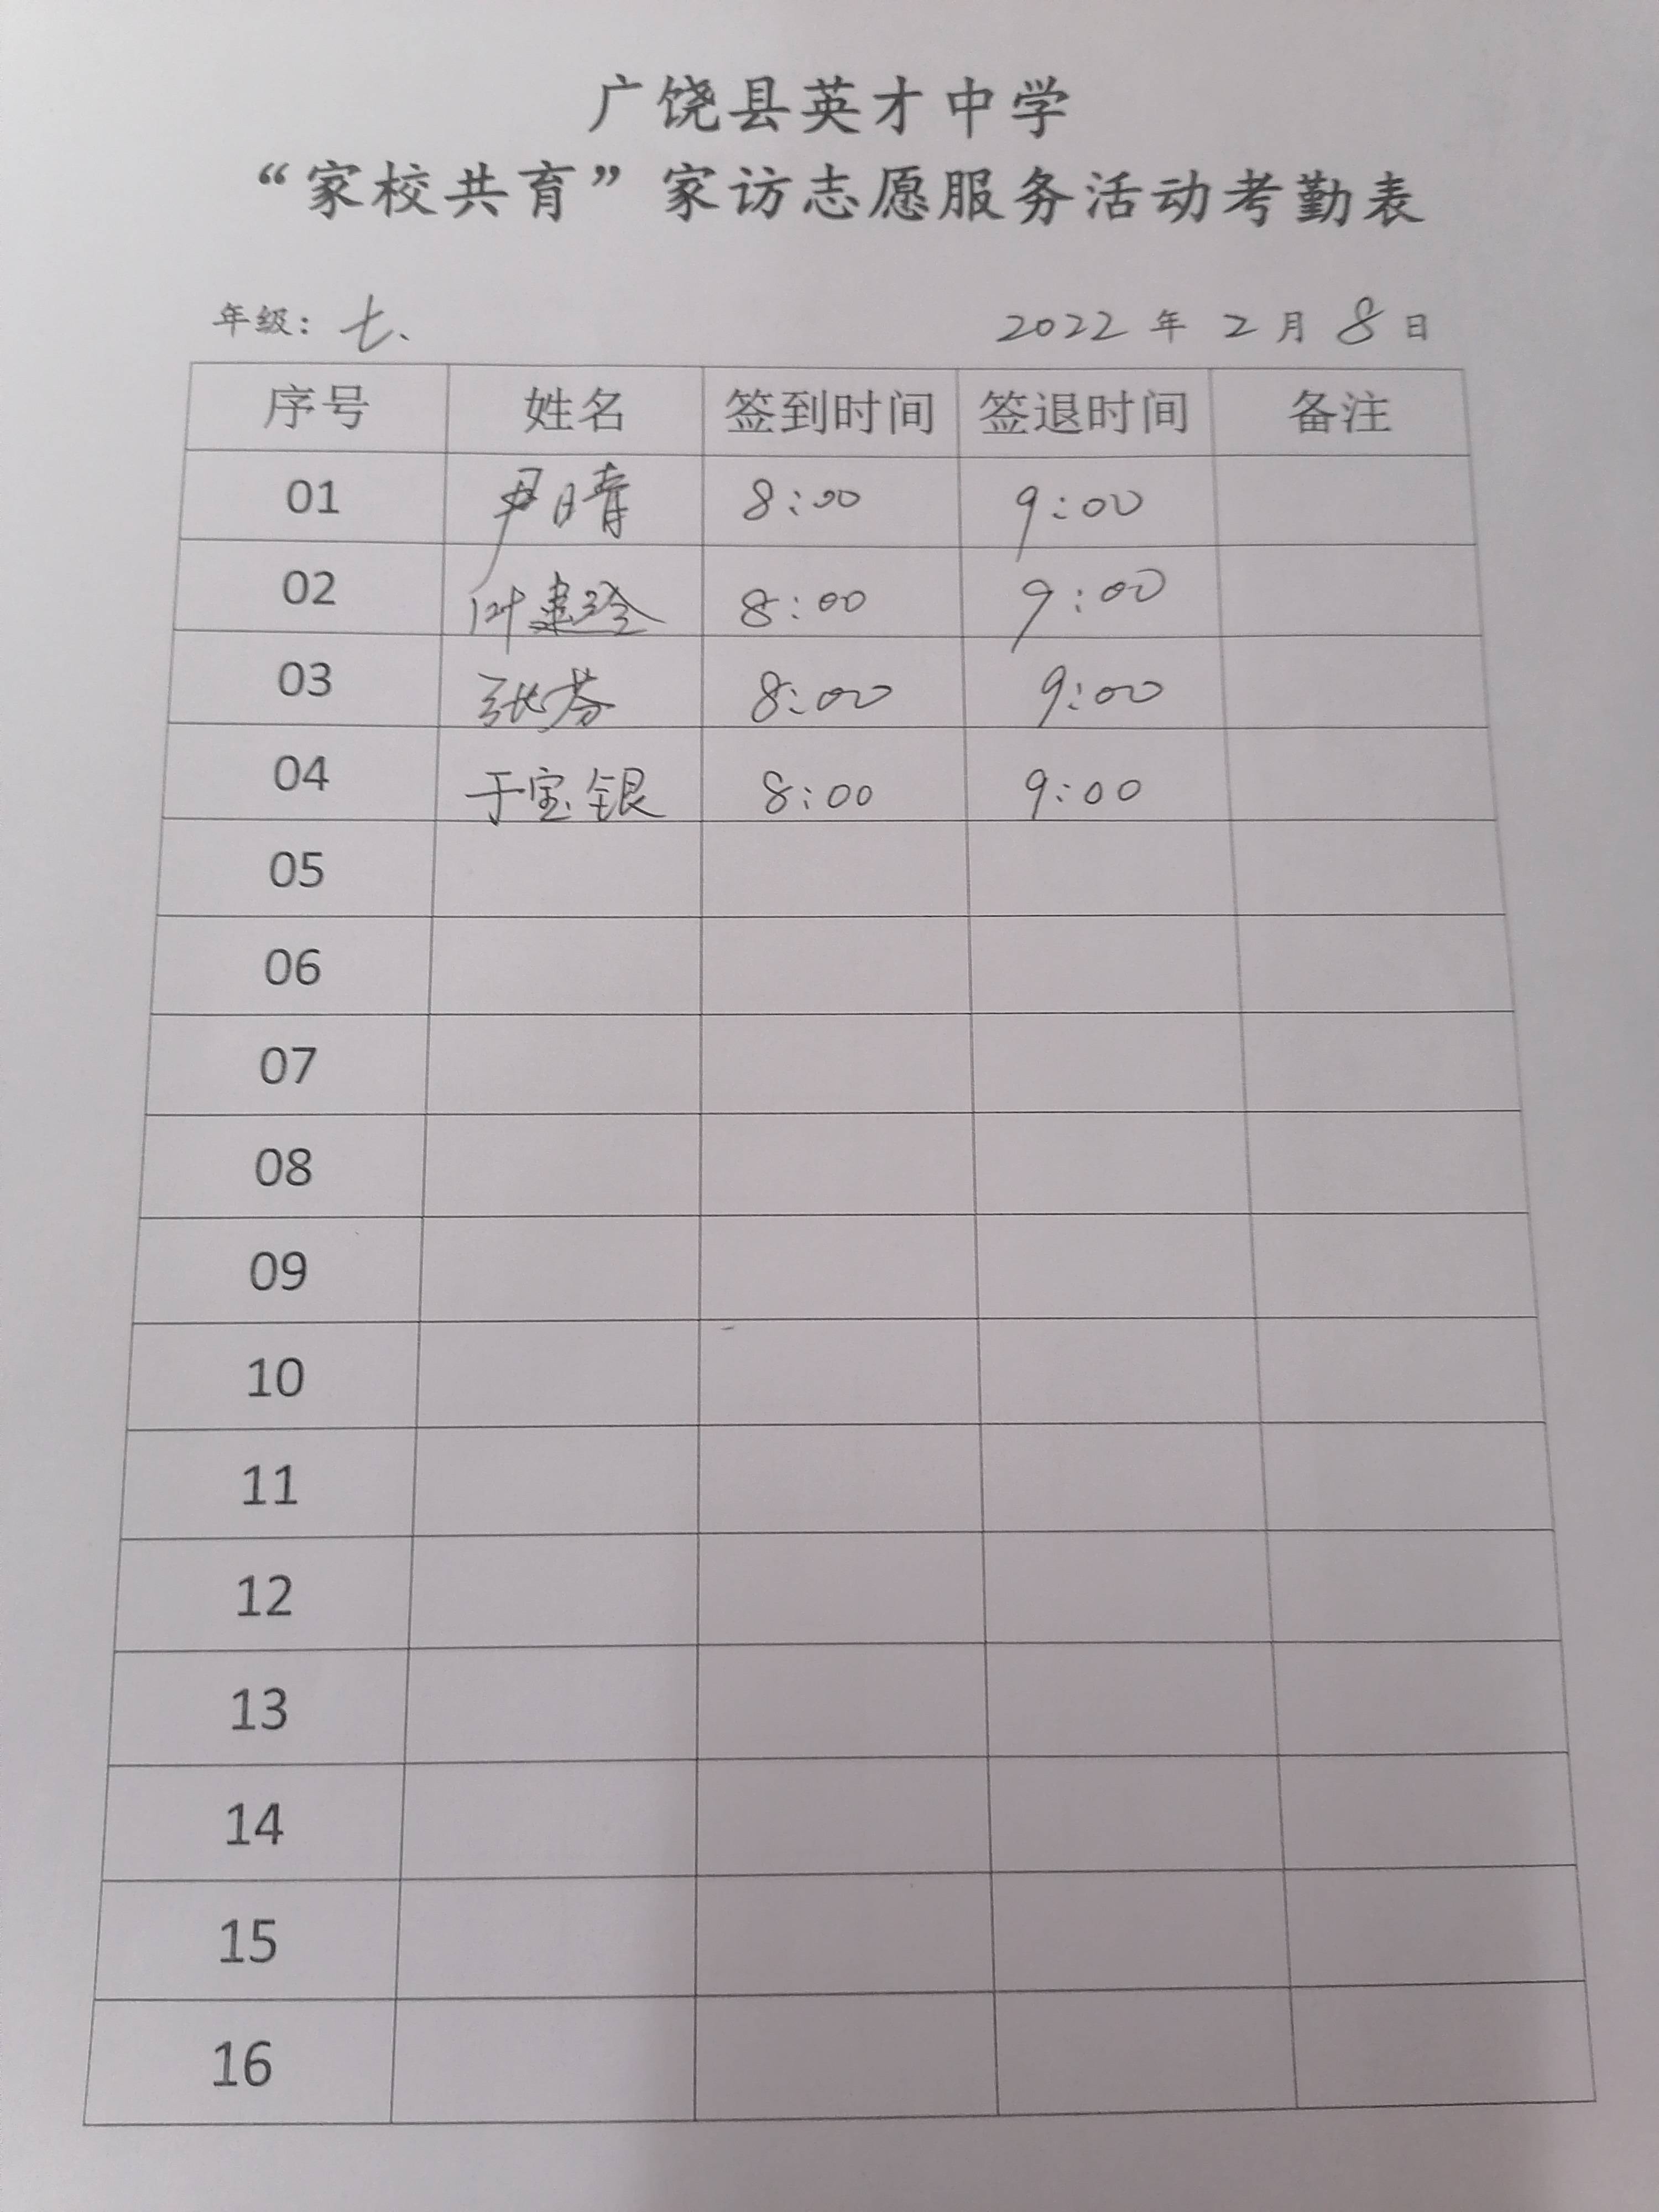 广饶县英才中学
“家校共育”家访志愿服务活动考勤表
年级：七、 2022 年 2 月 8 日
序号 姓名 签到时间 签退时间 备注
01 尹晴 8:00 9:00
02 叶建玲 8:00 9:00
03 张芬 8:00 9:00
04 于宝银 8:00 9:00
05
06
07
08
09
10
11
12
13
14
15
16